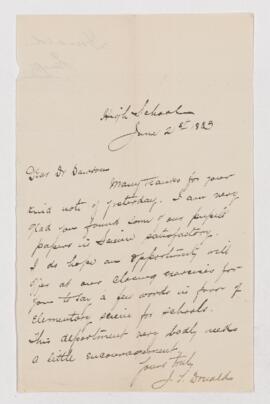 High School
June 2nd 1883
Dear Dr Dawson
Many thanks for your
kind note of yesterday. I am very
glad you found some of our pupils'
papers in Science satisfactory.
I do hope an opportunity will
at our closing exercises for
you to say a few words in favor of
elementary science for schools.
This department very badly needs
a little encouragement.
Yours truly
J. T. Donald